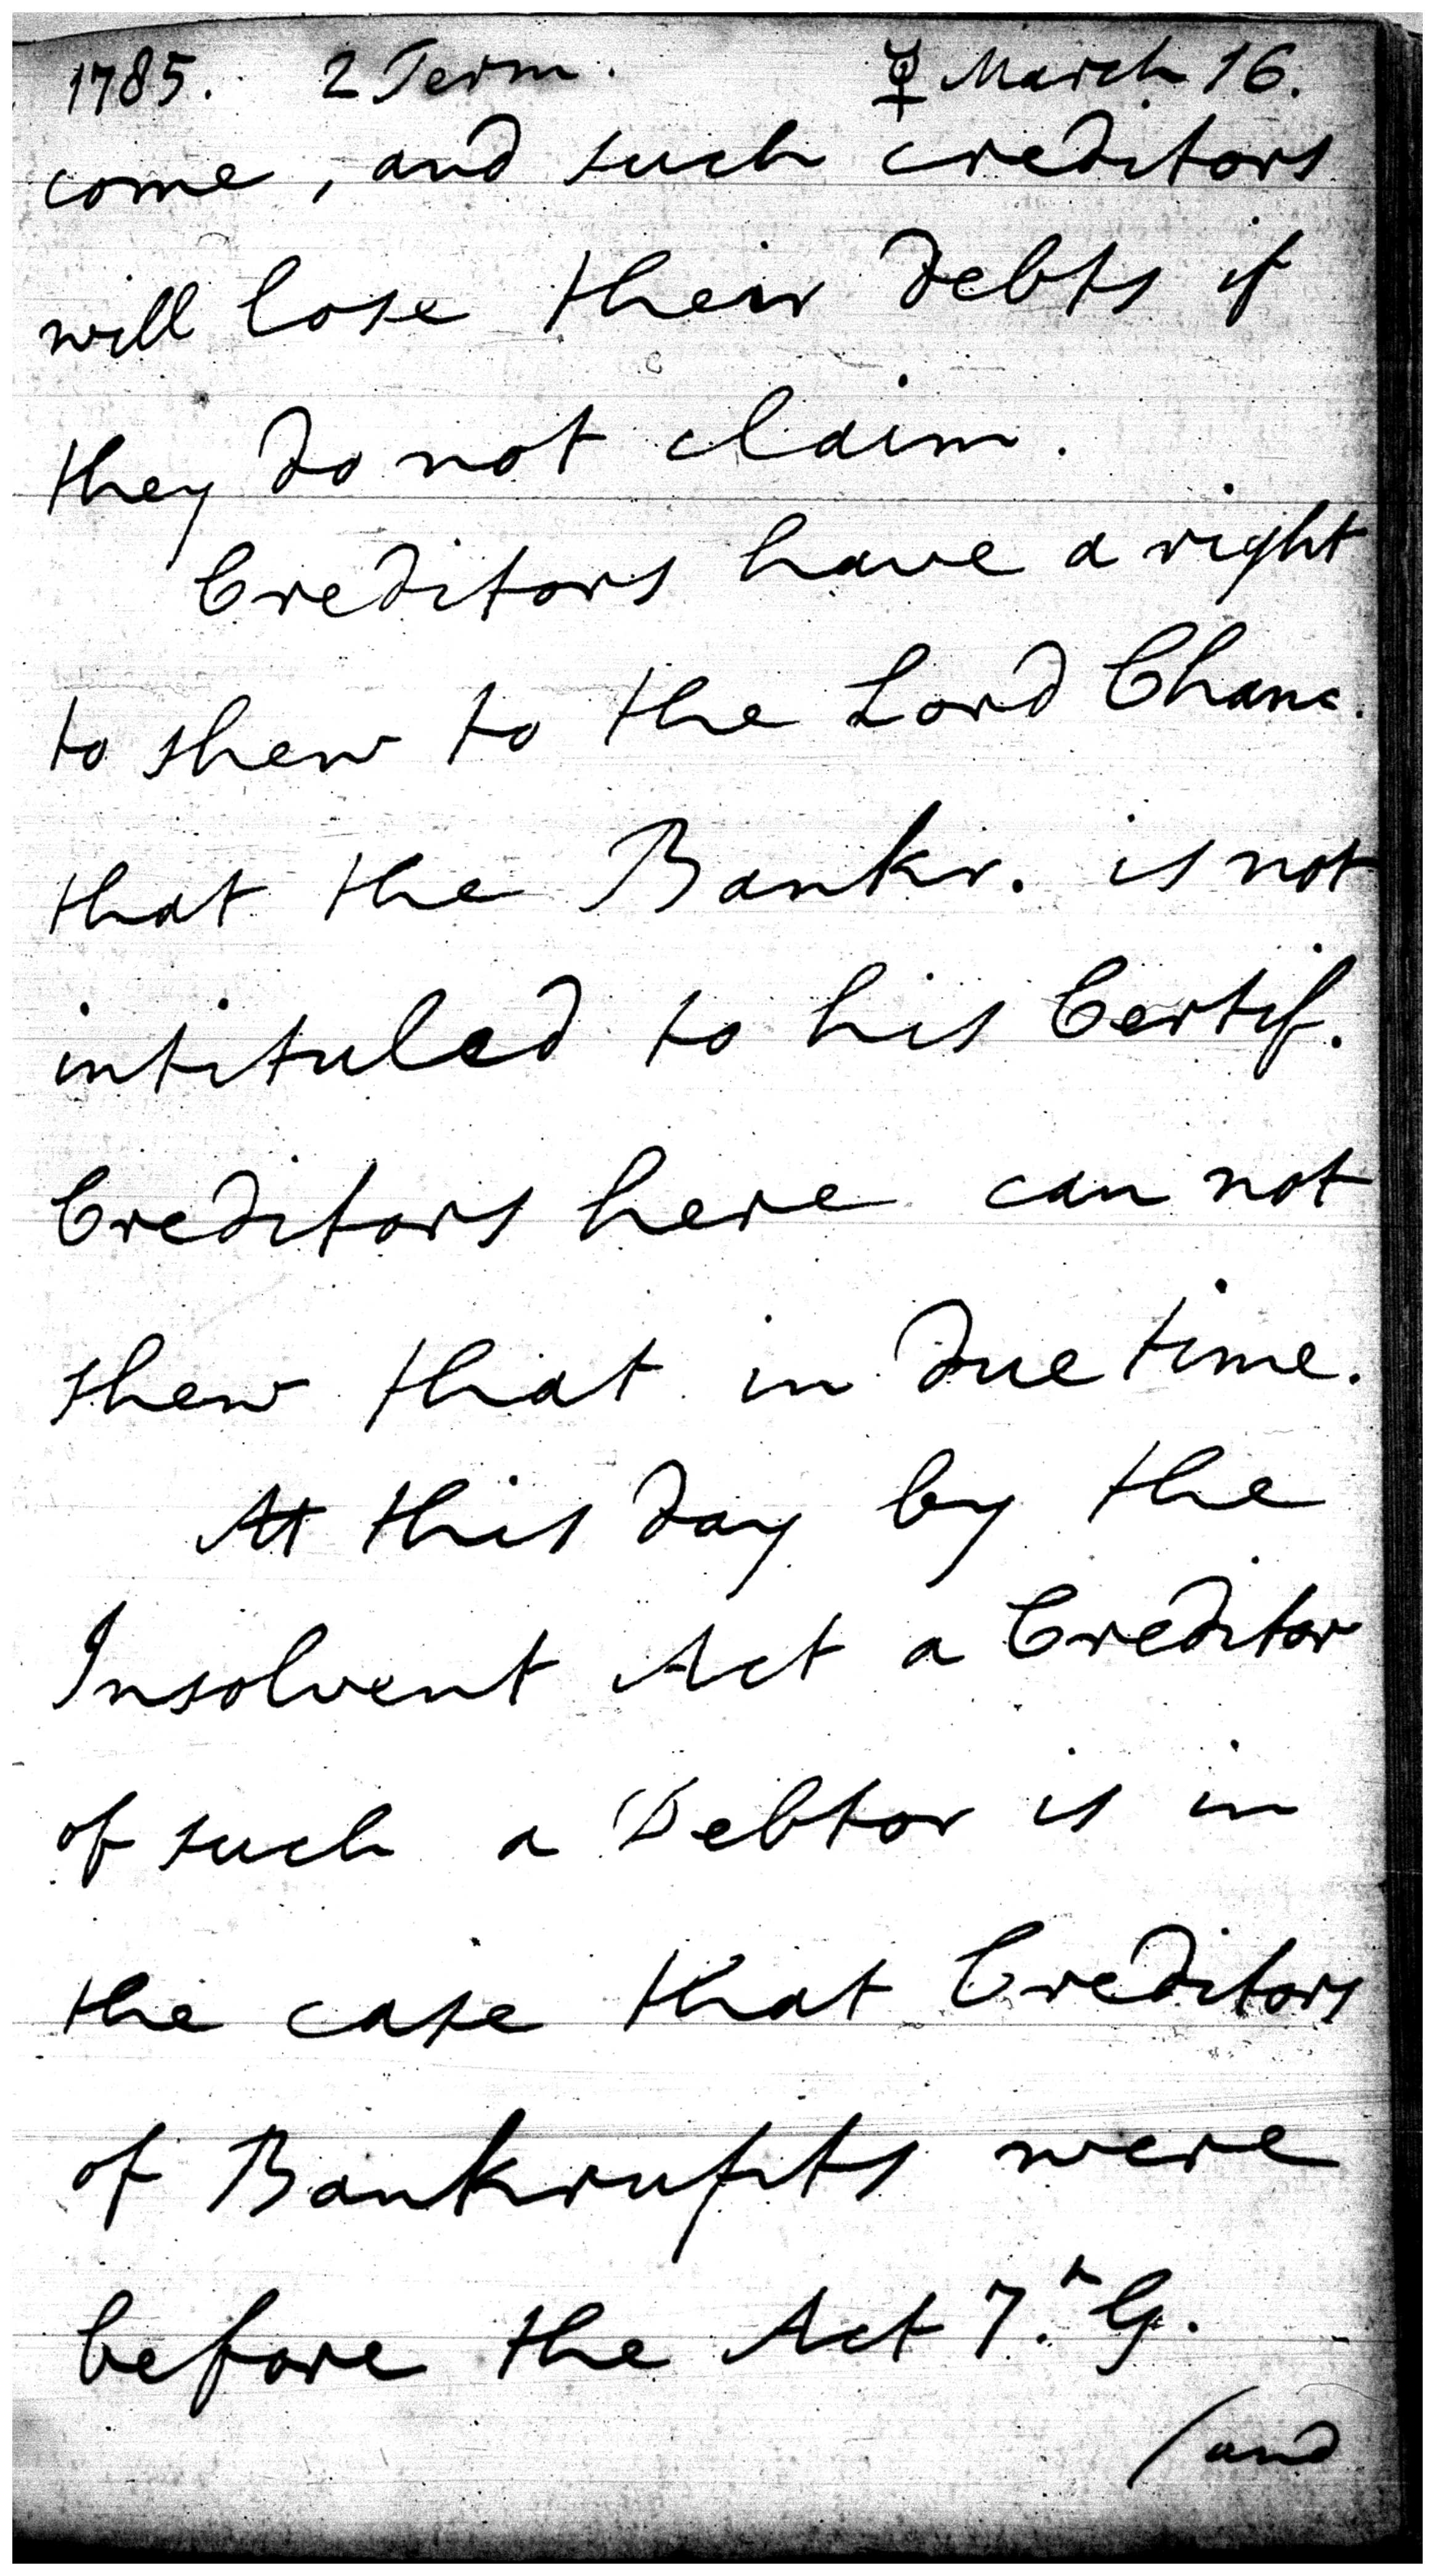 1785. 2 Term. ☿ March 16.
come, and such creditors
will lose their debts if
they do not claim.
Creditors have a right
to shew to the Lord Chanc.
that the Bankr. is not
intituled to his Certif.
Creditors here can not
shew that in due time.
At this day by the
Insolvent Act a Creditor
of such a Debtor is in
the case that Creditors
of Bankrupts were
before the Act 7.^h G.
(and